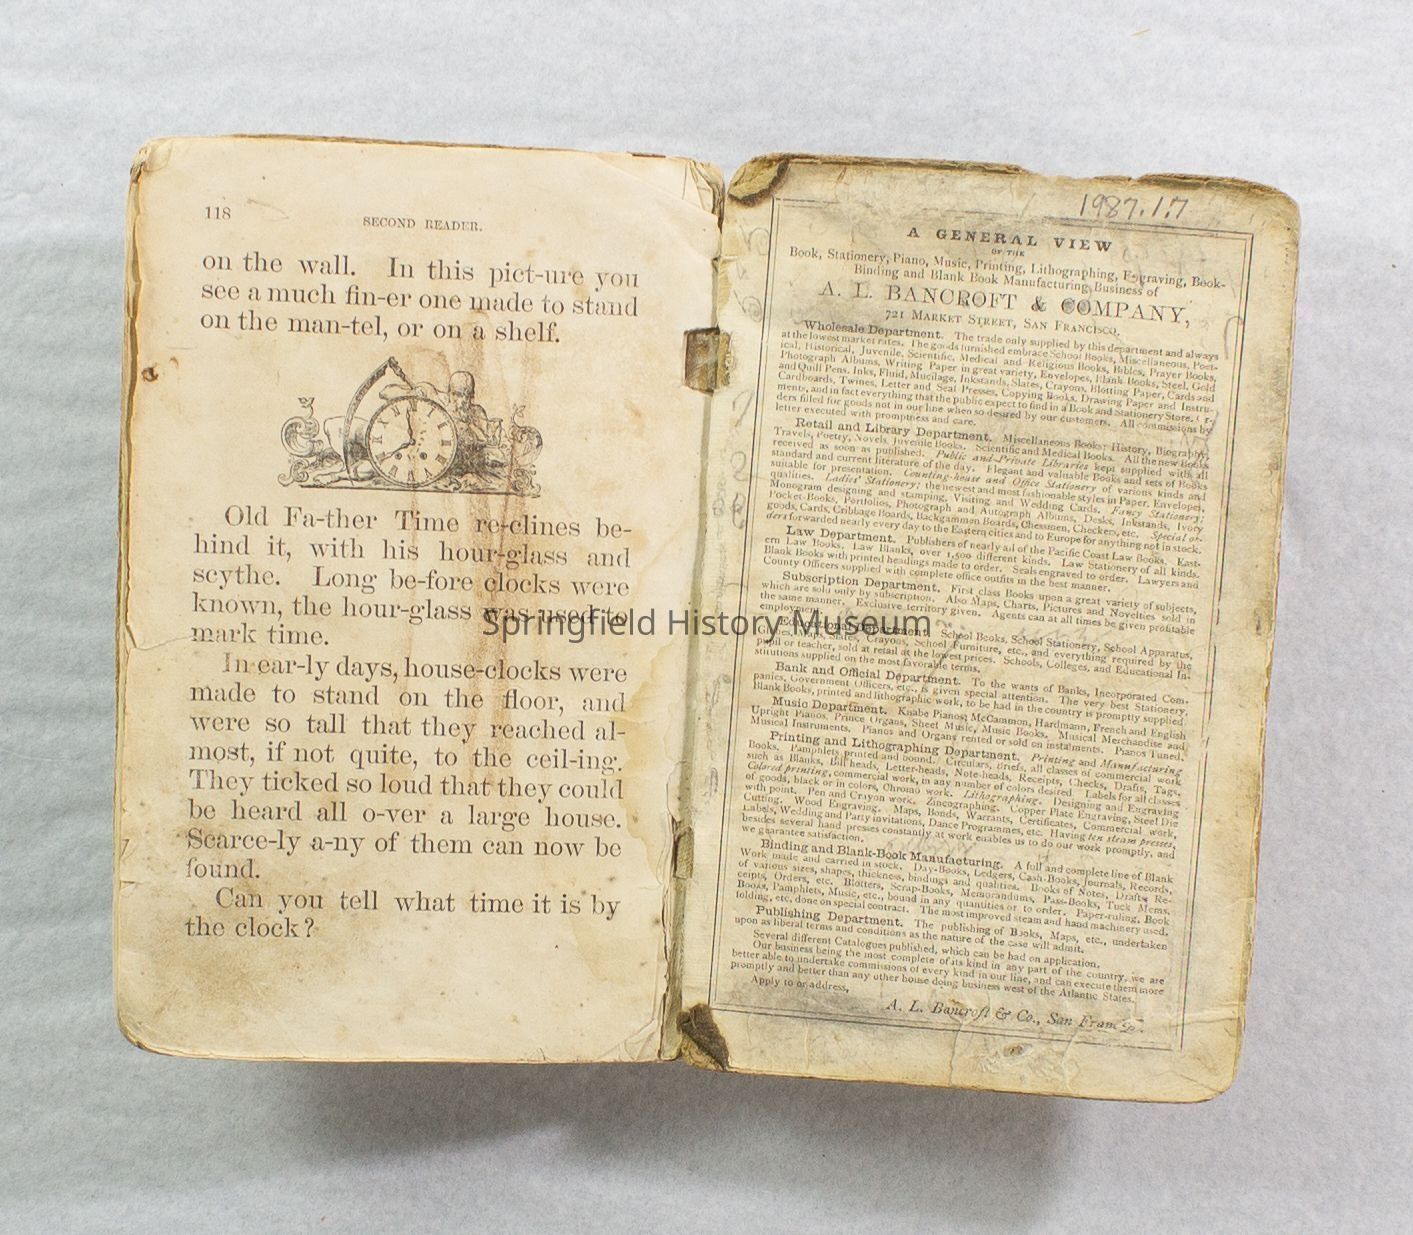 118
SECOND READER.
on the wall. In this pict-ure you
see a much fin-er one made to stand
on the man-tel, or on a shelf.
Old Fa-ther Time re-clines be-
hind it, with his hour-glass and
scythe. Long be-fore clocks were
known, the hour-glass was used to
mark time.
In ear-ly days, house-clocks were
made to stand on the floor, and
were so tall that they reached al-
most, if not quite, to the ceil-ing.
They ticked so loud that they could
be heard all o-ver a large house.
Scarce-ly a-ny of them can now be
found.
Can you tell what time it is by
the clock?
Springfield History Museum
1987.1.7
A GENERAL VIEW
OF THE
Book, Stationery, Piano, Music, Printing, Lithographing, Engraving, Book-
Binding and Blank Book Manufacturing Business of
A. L. BANCROFT & COMPANY,
721 MARKET STREET, SAN FRANCISCO.
Wholesale Department. The trade only supplied by this department and always
at the lowest market rates. The goods furnished embrace School Books, Miscellaneous, Poet-
ical, Historical, Juvenile, Scientific, Medical and Religious Books, Bibles, Prayer Books,
Photograph Albums, Writing Paper in great variety, Envelopes, Blank Books, Steel, Gold
and Quill Pens, Inks, Fluid, Mucilage, Inkstands, Slates, Crayons, Blotting Paper, Cards and
Cardboards, Twines, Letter and Seal Presses, Copying Books, Drawing Paper and Instru-
ments, and in fact everything that the public expect to find in a Book and Stationery Store. Or-
ders filled for goods not in our line when so desired by our customers. All commissions by
letter executed with promptness and care.
Retail and Library Department. Miscellaneous Books: History, Biography,
Travels, Poetry, Novels, Juvenile Books. Scientific and Medical Books. All the new Books
received as soon as published. Public and Private Libraries kept supplied with all
standard and current literature of the day. Elegant and valuable Books and sets of Books
suitable for presentation. Counting-house and Office Stationery of various kinds and
qualities. Ladies' Stationery; the newest and most fashionable styles in Paper, Envelopes,
Monogram designing and stamping, Visiting and Wedding Cards. Fancy Stationery;
Pocket-Books, Portfolios, Photograph and Autograph Albums, Desks, Inkstands, Ivory
goods, Cards, Cribbage Boards, Backgammon Boards, Chessmen, Checkers, etc. Special or-
ders forwarded nearly every day to the Eastern cities and to Europe for anything not in stock.
Law Department. Publishers of nearly all of the Pacific Coast Law Books. East-
ern Law Books. Law Blanks, over 1,500 different kinds. Law Stationery of all kinds.
Blank Books with printed headings made to order. Seals engraved to order. Lawyers and
County Officers supplied with complete office outfits in the best manner.
Subscription Department. First class Books upon a great variety of subjects,
which are sold only by subscription. Also Maps, Charts, Pictures and Novelties sold in
the same manner. Exclusive territory given. Agents can at all times be given profitable
employment.
Educational Department. School Books, School Stationery, School Apparatus,
Globes, Maps, Slates, Crayons, School Furniture, etc., and everything required by the
pupil or teacher, sold at retail at the lowest prices. Schools, Colleges, and Educational In-
stitutions supplied on the most favorable terms.
Bank and Official Department. To the wants of Banks, Incorporated Com-
panies, Government Officers, etc., is given special attention. The very best Stationery,
Blank Books, printed and lithographic work, to be had in the country is promptly supplied
Music Department. Knabe Pianos; McCammon, Hardmann, French and English
Upright Pianos, Prince Organs, Sheet Music, Music Books. Musical Merchandise and
Musical Instruments. Pianos and Organs rented or sold on instalments. Pianos Tuned.
Printing and Lithographing Department. Printing and Manufacturing
Books. Pamphlets printed and bound. Circulars, Briefs, all classes of commercial work
such as Blanks, Bill heads, Letter-heads, Note-heads, Receipts, Checks, Drafts, Tags,
Colored printing, commercial work, in any number of colors desired Labels for all classes
of goods, black or in colors, Chromo work. Lithographing. Designing and Engraving
with point. Pen and Crayon work. Zincographing. Copper Plate Engraving, Steel Die
Cutting, Wood Engraving. Maps, Bonds, Warrants, Certificates, Commercial work,
Labels, Wedding and Party invitations, Dance Programmes, etc. Having ten steam presses,
besides several hand presses constantly at work enables us to do our work promptly, and
we guarantee satisfaction.
Binding and Blank-Book Manufacturing. A full and complete line of Blank
Work made and carried in stock. Day-Books, Ledgers, Cash-Books, Journals, Records,
of various sizes, shapes, thickness, bindings and qualities. Books of Notes, Drafts Re-
ceipts, Orders, etc. Blotters, Scrap-Books, Memorandums, Pass-Books, Tuck Mems.
Books, Pamphlets, Music, etc., bound in any quantities or to order. Paper-ruling, Book
folding, etc. done on special contract. The most improved steam and hand machinery used.
Publishing Department. The publishing of Books, Maps, etc., undertaken
upon as liberal terms and conditions as the nature of the case will admit.
Several different Catalogues published, which can be had on application.
Our business being the most complete of its kind in any part of the country, we are
better able to undertake commissions of every kind in our line, and can execute them more
promptly and better than any other house doing business west of the Atlantic States.
Apply to or address,
A. L. Bancroft & Co., San Francisco.